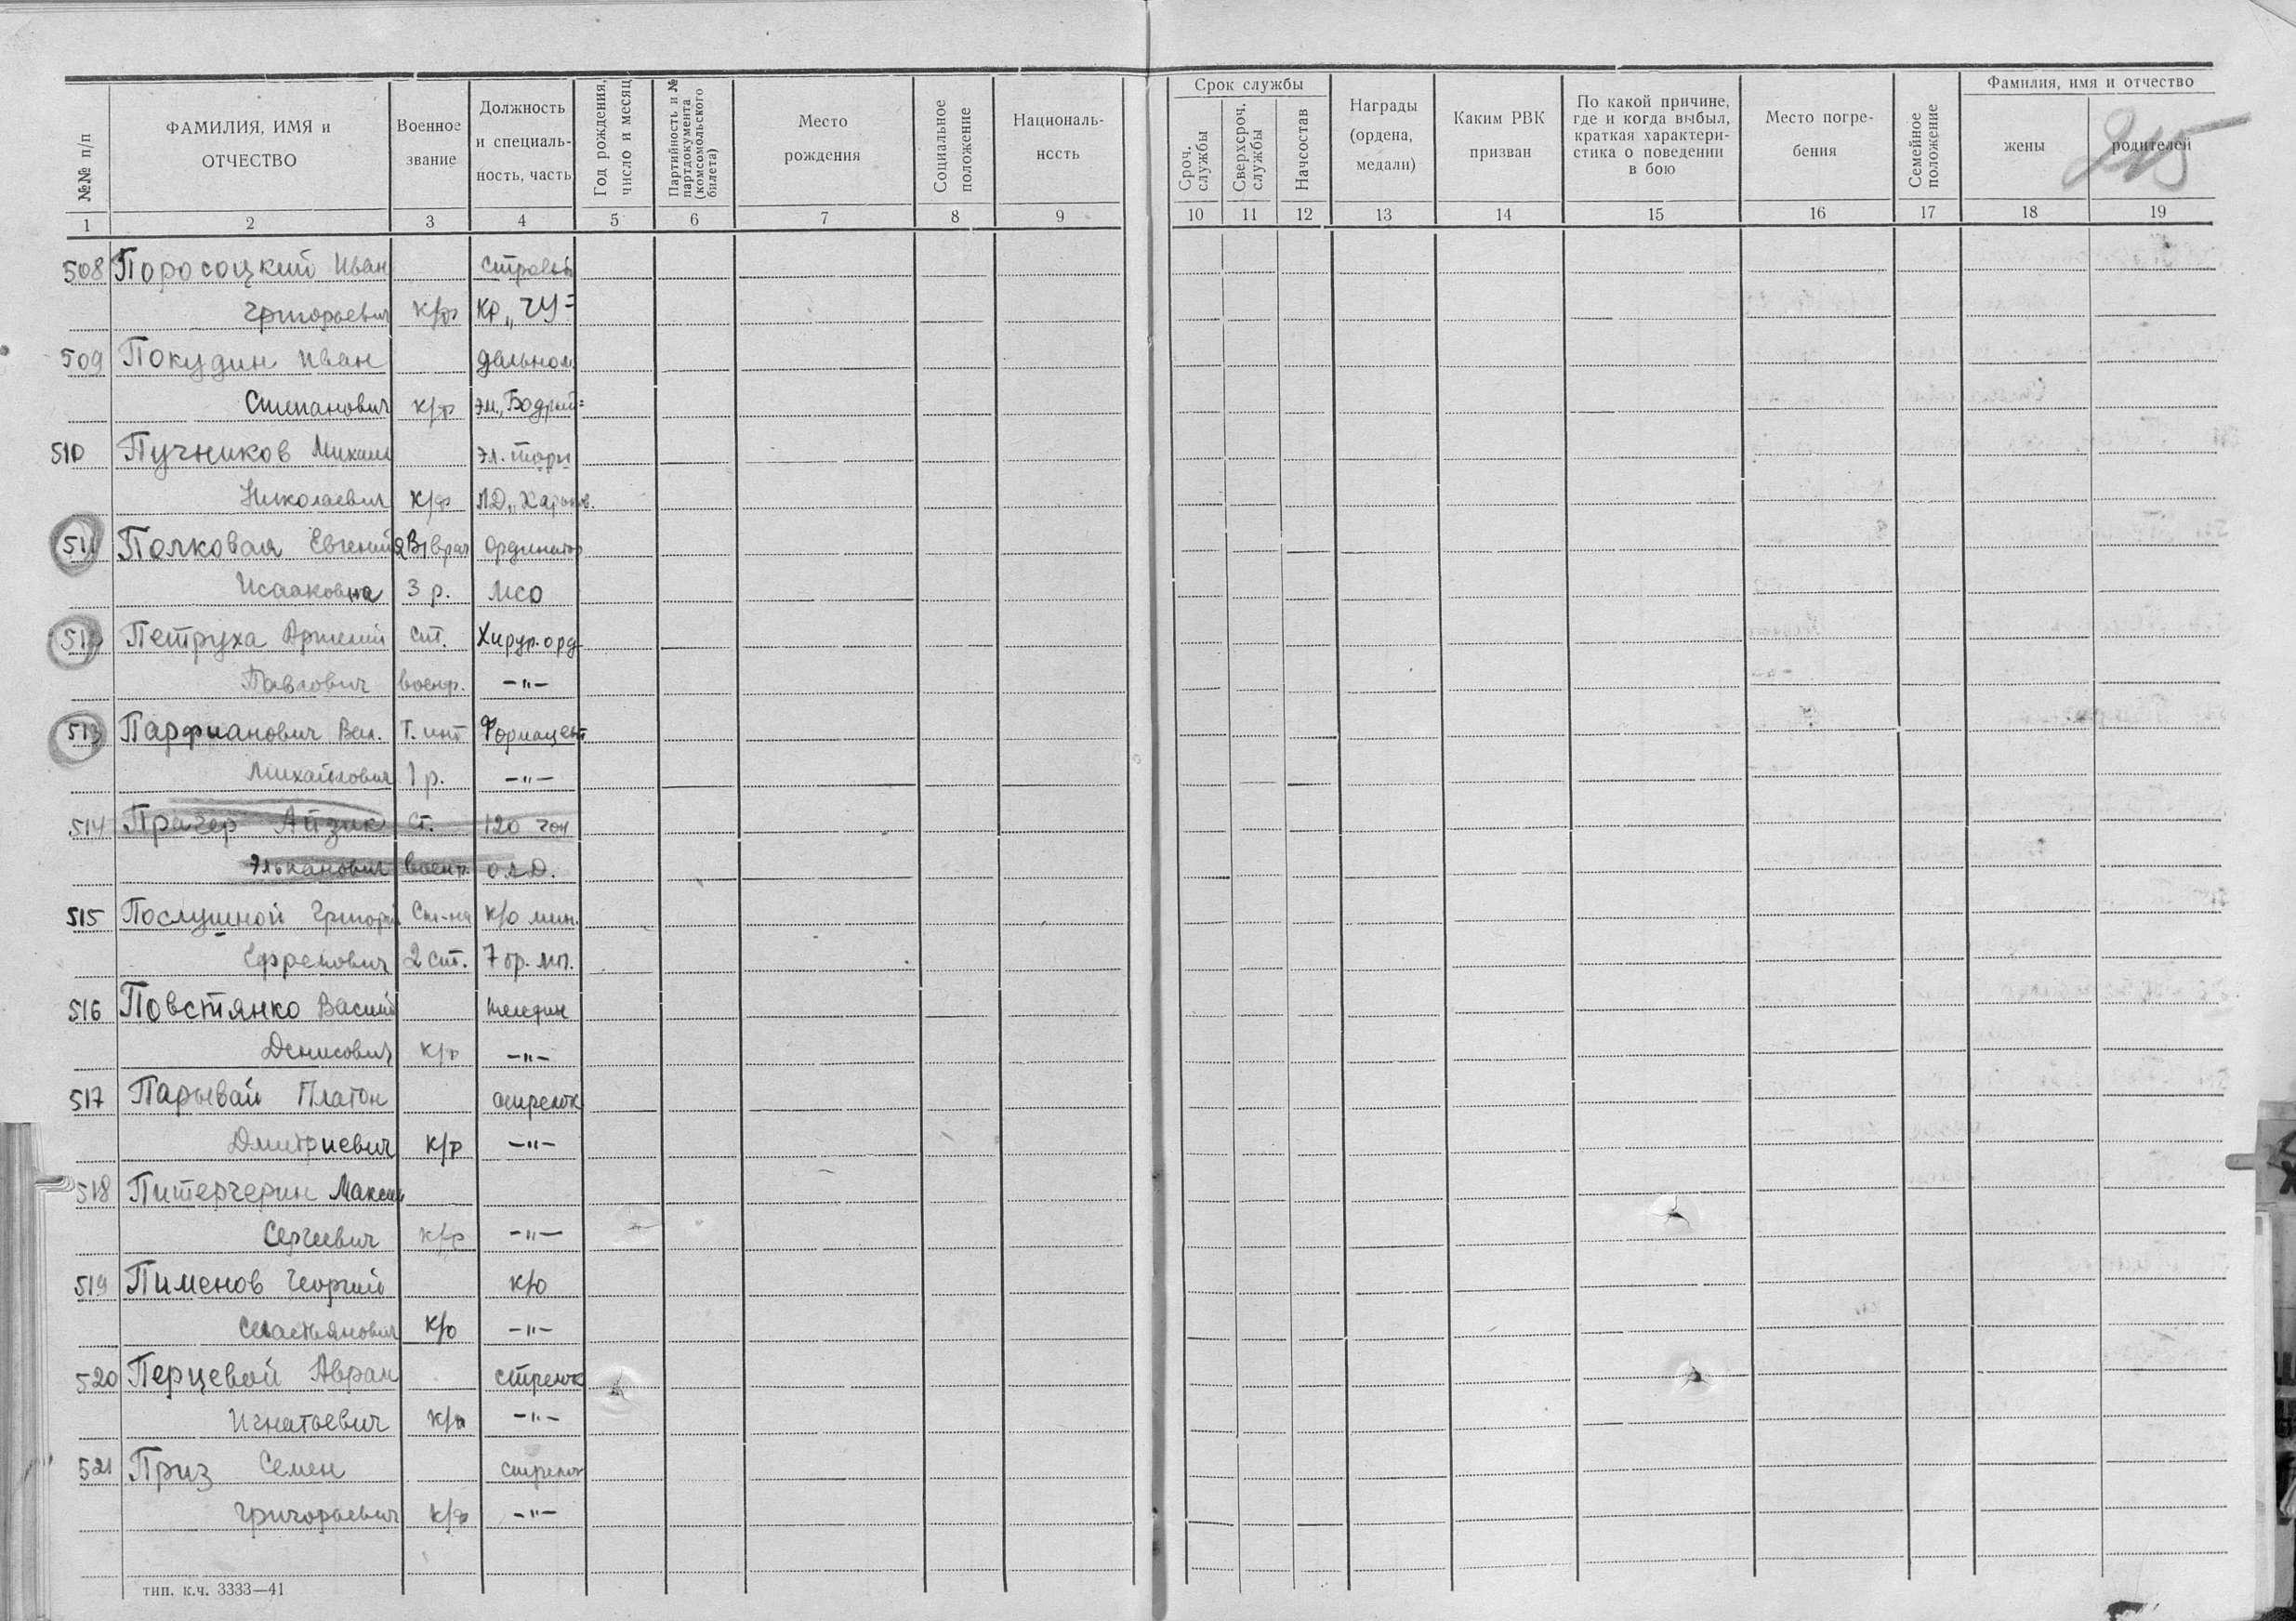 №№ п/п
ФАМИЛИЯ, ИМЯ и ОТЧЕСТВО
Военное звание
Должность и специаль-ность, часть
Год рождения, число и месяц
Партийность и № партдокумента (комсомольского билета)
Место рождения
Социальное положение
Националь-ность
Срок службы
Сроч. службы
Сверхсроч. службы
Начсостав
Награды (ордена, медали)
Каким РВК призван
По какой причине, где и когда выбыл, краткая характери-стика о поведении в бою
Место погре-бения
Семейное положение
Фамилия, имя и отчество
жены
родителей
215
1 2 3 4 5 6 7 8 9 10 11 12 13 14 15 16 17 18 19
508 Поросоцкий Иван строевой
Григорьевич к/ф кр „ЧУ"
509 Покудин Иван дальном
Степанович к/ф эм „Бодрый"
510 Пучников Михаил эл. торп
Николаевич к/ф ЛД „Харьков.
511 Полковая Евгения В/врач ординатор
Исааковна 3 р. МСО
512 Петруха Артемий ст. Хирур. орд
Павлович военф. —"—
513 Парфианович Вал. Т. инт Формацевт
Михайлович 1 р. —"—
514 Прагер Айзик ст. 120
Эльканович военф. О.А.Д.
515 Послушной Григорий Ст-на к/о мин.
Ефремович 2 ст. 7 бр. мп.
516 Повстянко Василий
Денисович к/ф —"—
517 Парывай Платон стрелок
Дмитриевич к/ф —"—
518 Питерчерин Максим
Сергеевич к/ф —"—
519 Пименов Георгий к/о
Севастьянович к/о —"—
520 Перцевой Аврам стрелок
Игнатьевич к/ф —"—
521 Приз Семен стрелок
Григорьевич к/ф —"—
тип. к.ч. 3333—41